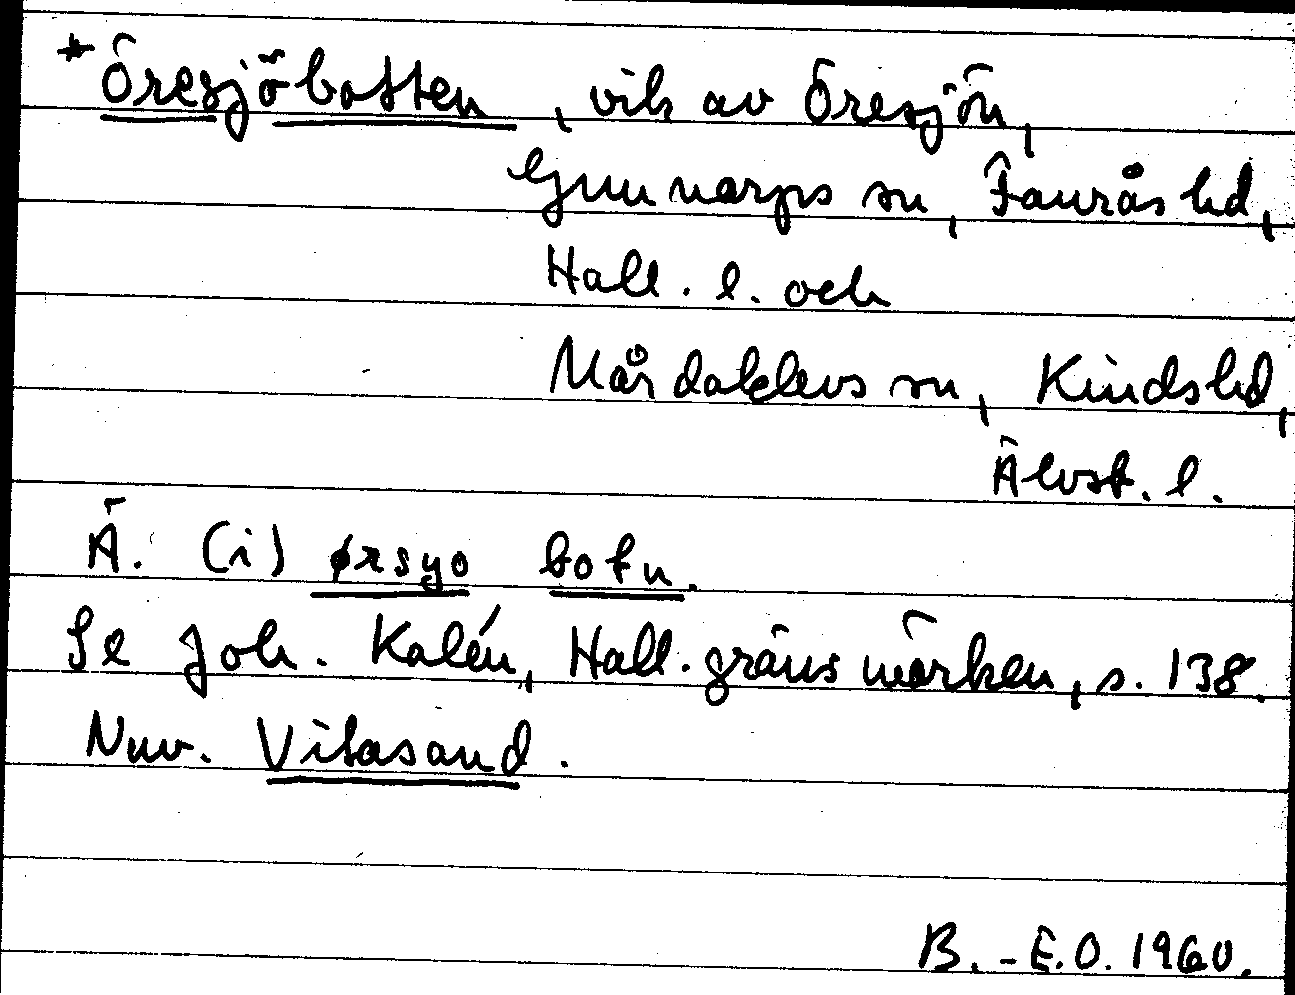 *Öresjöbotten, vik av Öresjön,
Gunnarps sn, Faurås hd,
Hall. l. och
Mårdaklevs sn, Kinds hd,
Älvsb. l.
Ä. (i) ørsyo botn.
Se Joh. Kalén, Hall. gränsmärken, s. 138.
Nuv. Vitasand.
B.-E.O. 1960.